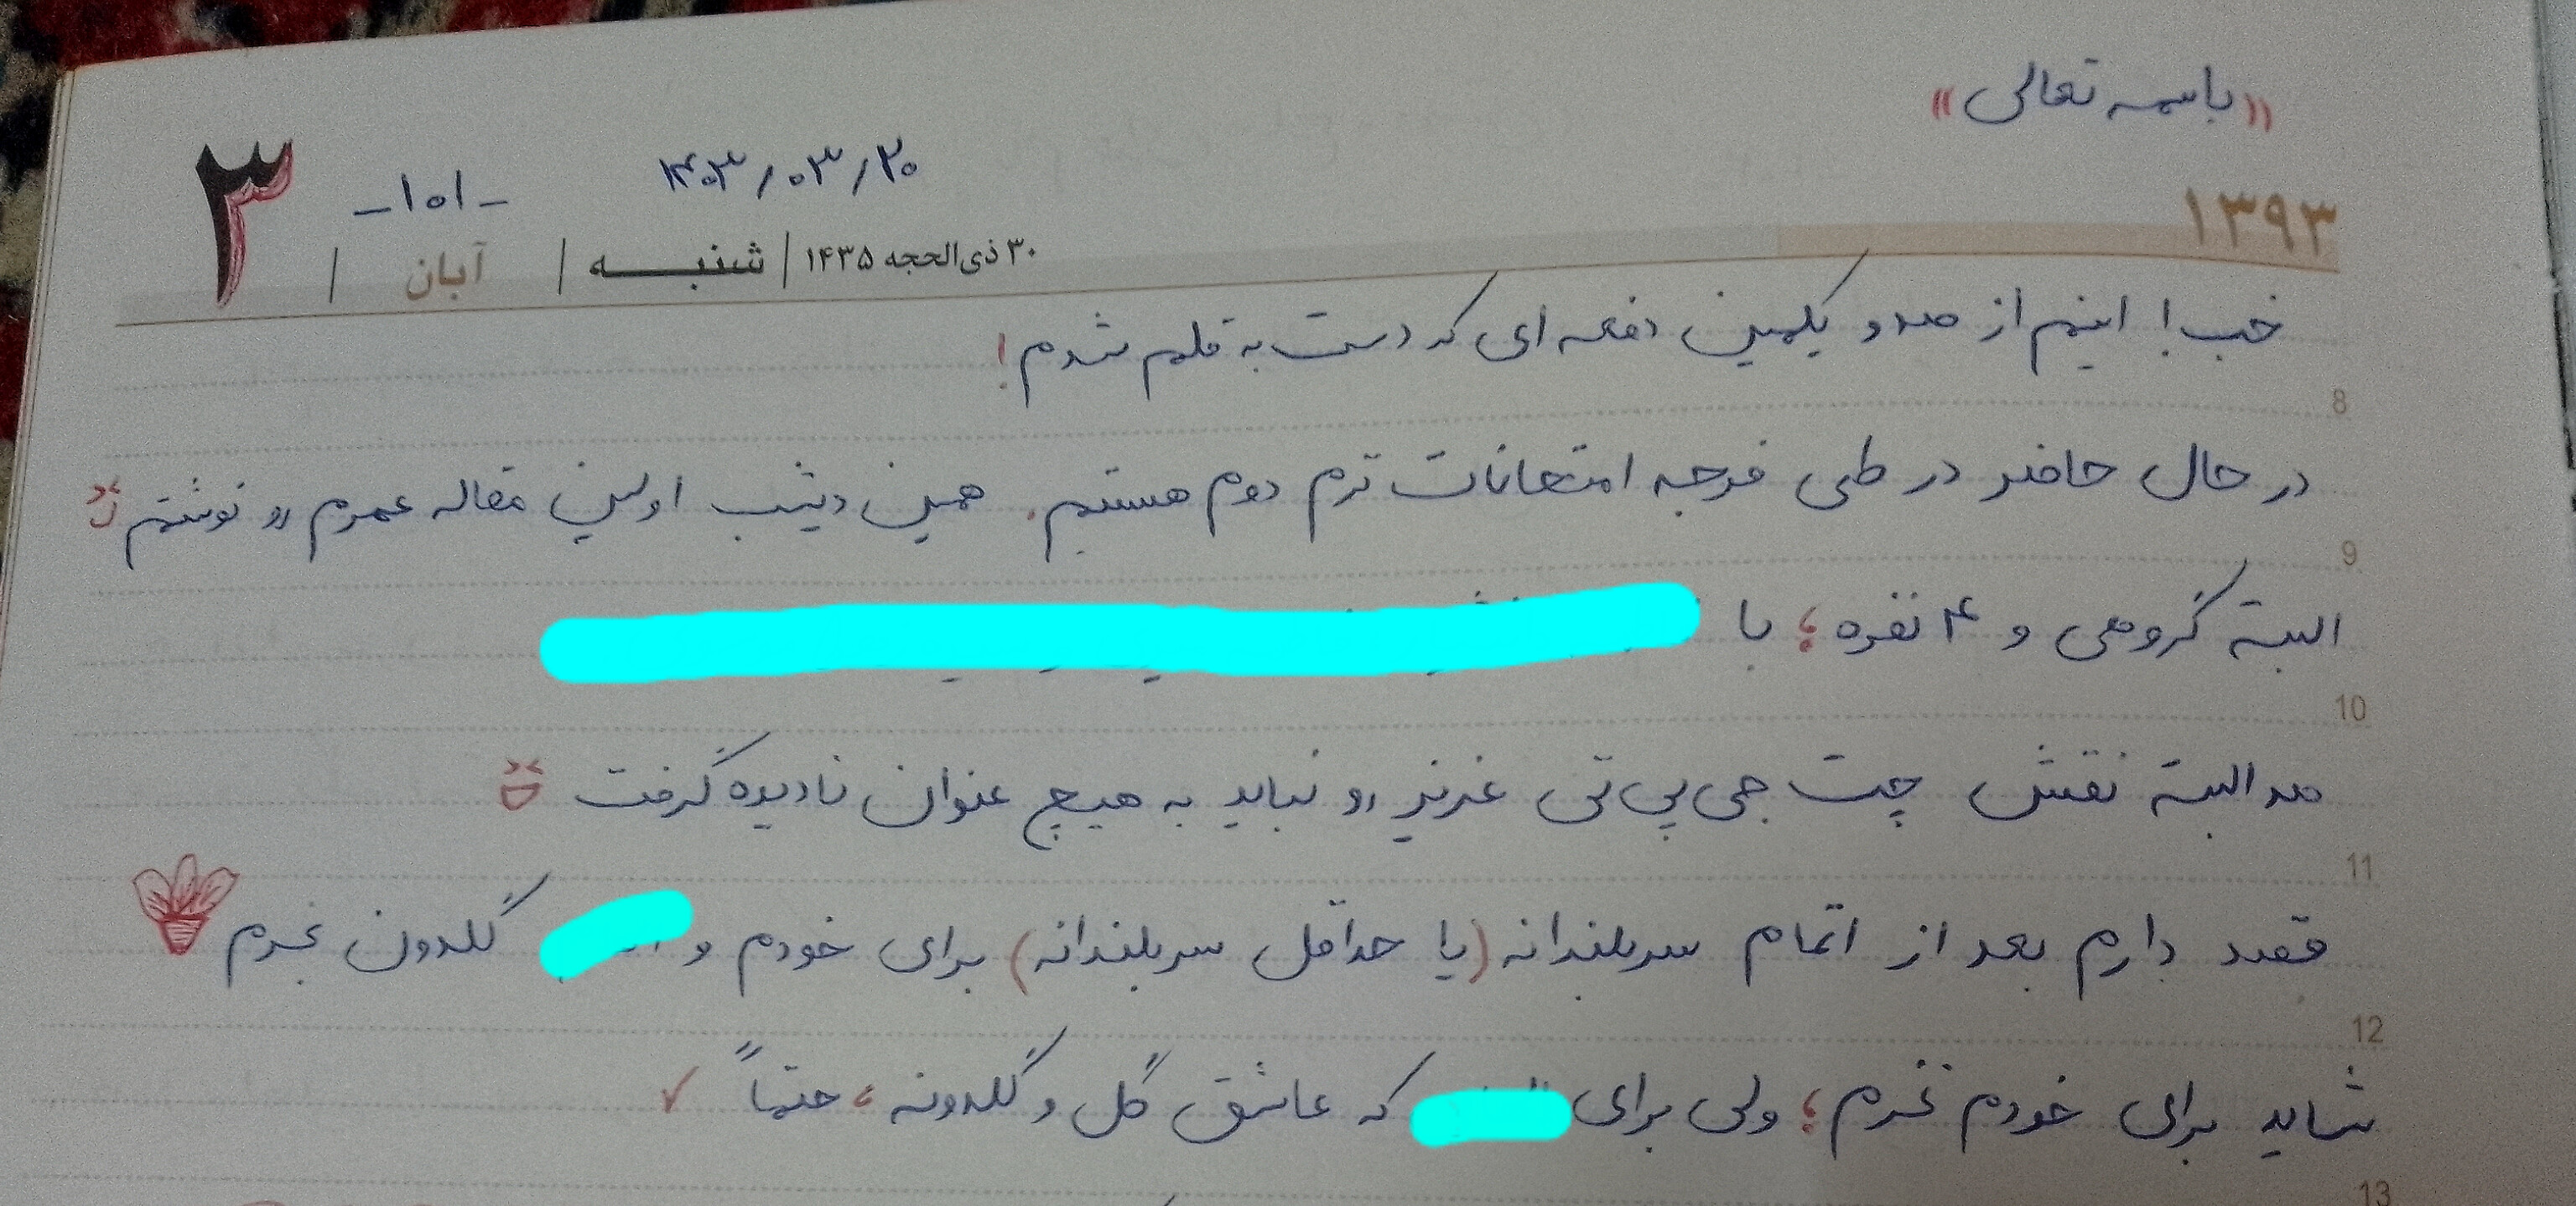 «باسمه تعالی»
۱۴۰۳/۰۳/۲۰
-۱۰۱-
۳
۱۳۹۳
۳۰ ذی‌الحجه ۱۴۳۵ | شنبه | آبان |
خب! اینم از صد و یکمین دفعه ای که دست به قلم شدم!
8
در حال حاضر در طی فرجه امتحانات ترم دوم هستیم. همین دیشب اولین مقاله عمرم رو نوشتم
9
البته گروهی و ۴ نفره؛ با
10
صد البته نقش چت جی پی تی عزیز رو نباید به هیچ عنوان نادیده گرفت
11
قصد دارم بعد از اتمام سربلندانه (یا حداقل سربلندانه) برای خودم و گلدون بخرم
12
شاید برای خودم نخرم؛ ولی برای که عاشق گل و گلدونه، حتماً ✓
13